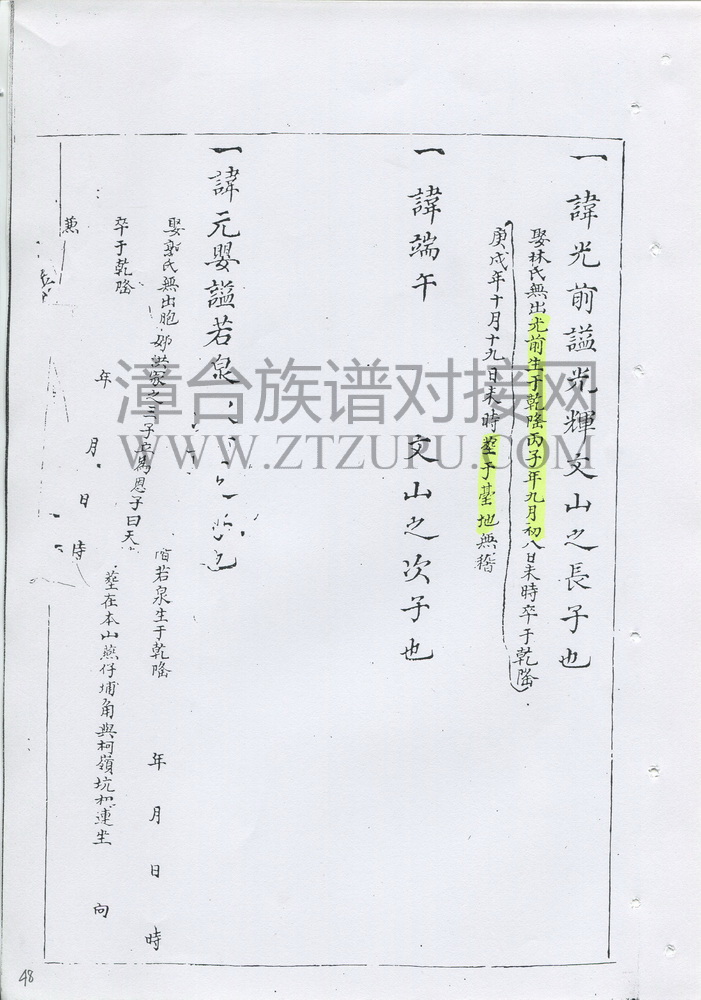 一諱光前諡光輝文山之長子也
娶林氏無出光前生于乾隆丙子年九月初八日未時卒于乾隆
庚戌年十月十九日未時塟于臺地無稽
一諱端午 文山之次子也
一諱元嬰諡若泉
娶郭氏無出胞 洪家之三子 為恩子曰天 若泉生于乾隆 年 月 日 時
卒于乾隆 年 月 日 時 塟在本山燕仔埔角與柯嶺坑相連坐 向
兼
漳台族谱对接网
WWW.ZTZUPU.COM
48